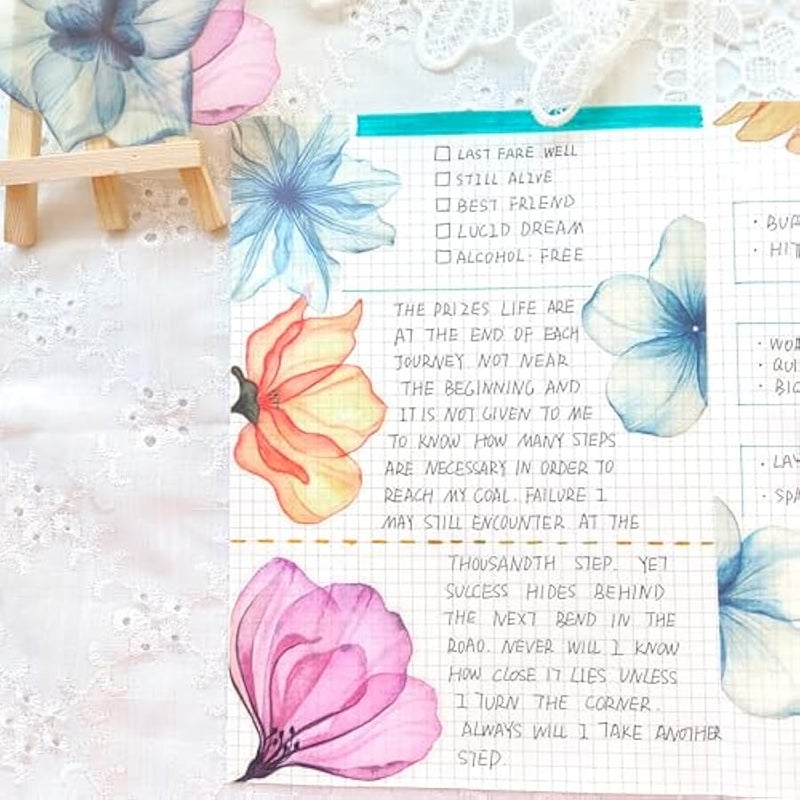 LAST FARE WELL
STILL ALIVE
BEST FRIEND
LUCID DREAM
ALCOHOL· FREE
THE PRIZES LIFE ARE
AT THE END OF EACH
JOURNEY. NOT NEAR
THE BEGINNING AND
IT IS NOT GIVEN TO ME
TO KNOW HOW MANY STEPS
ARE NECESSARY IN ORDER TO
REACH MY GOAL. FAILURE I
MAY STILL ENCOUNTER AT THE
THOUSANDTH STEP. YET
SUCCESS HIDES BEHIND
THE NEXT BEND IN THE
ROAD. NEVER WILL I KNOW
HOW CLOSE IT LIES UNLESS
I TURN THE CORNER.
ALWAYS WILL I TAKE ANOTHER
STEP.